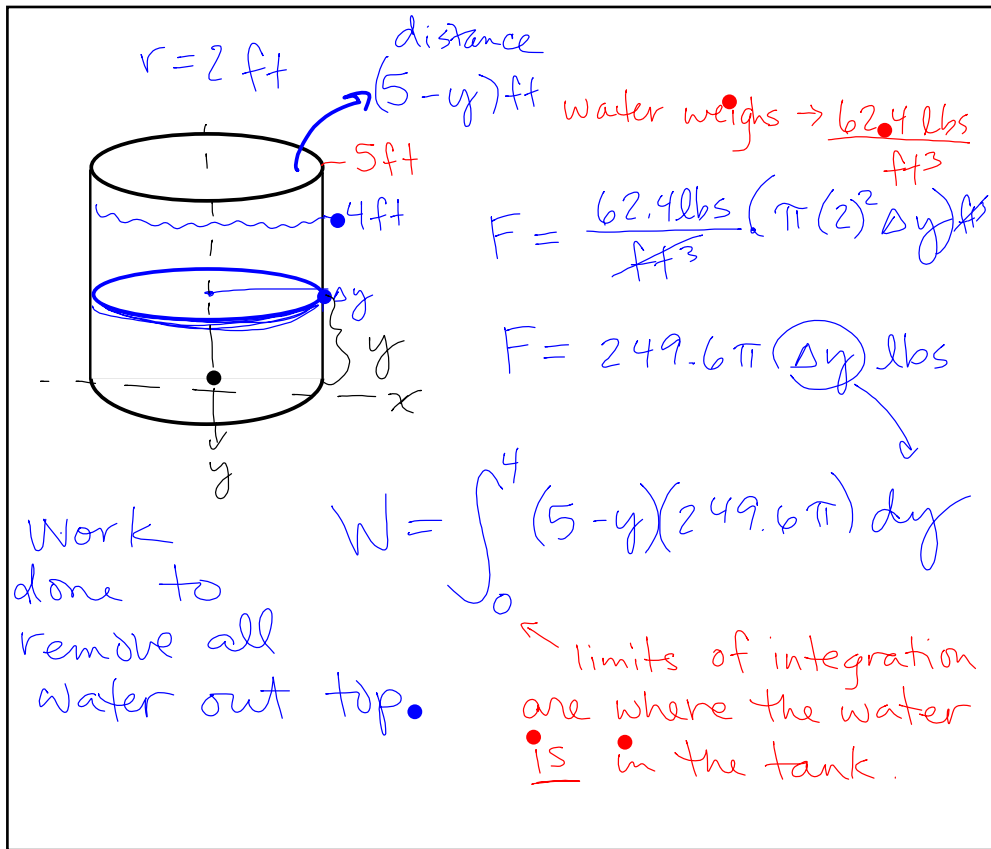 r = 2 ft
distance
(5-y) ft
water weighs → 62.4 lbs / ft³
5ft
4ft
Δy
y
x
y
F = 62.4 lbs / ft³ · (π(2)² Δy) ft³
F = 249.6π (Δy) lbs
W = ∫₀⁴ (5-y)(249.6π) dy
Work
done to
remove all
water out top.
limits of integration
are where the water
is in the tank.